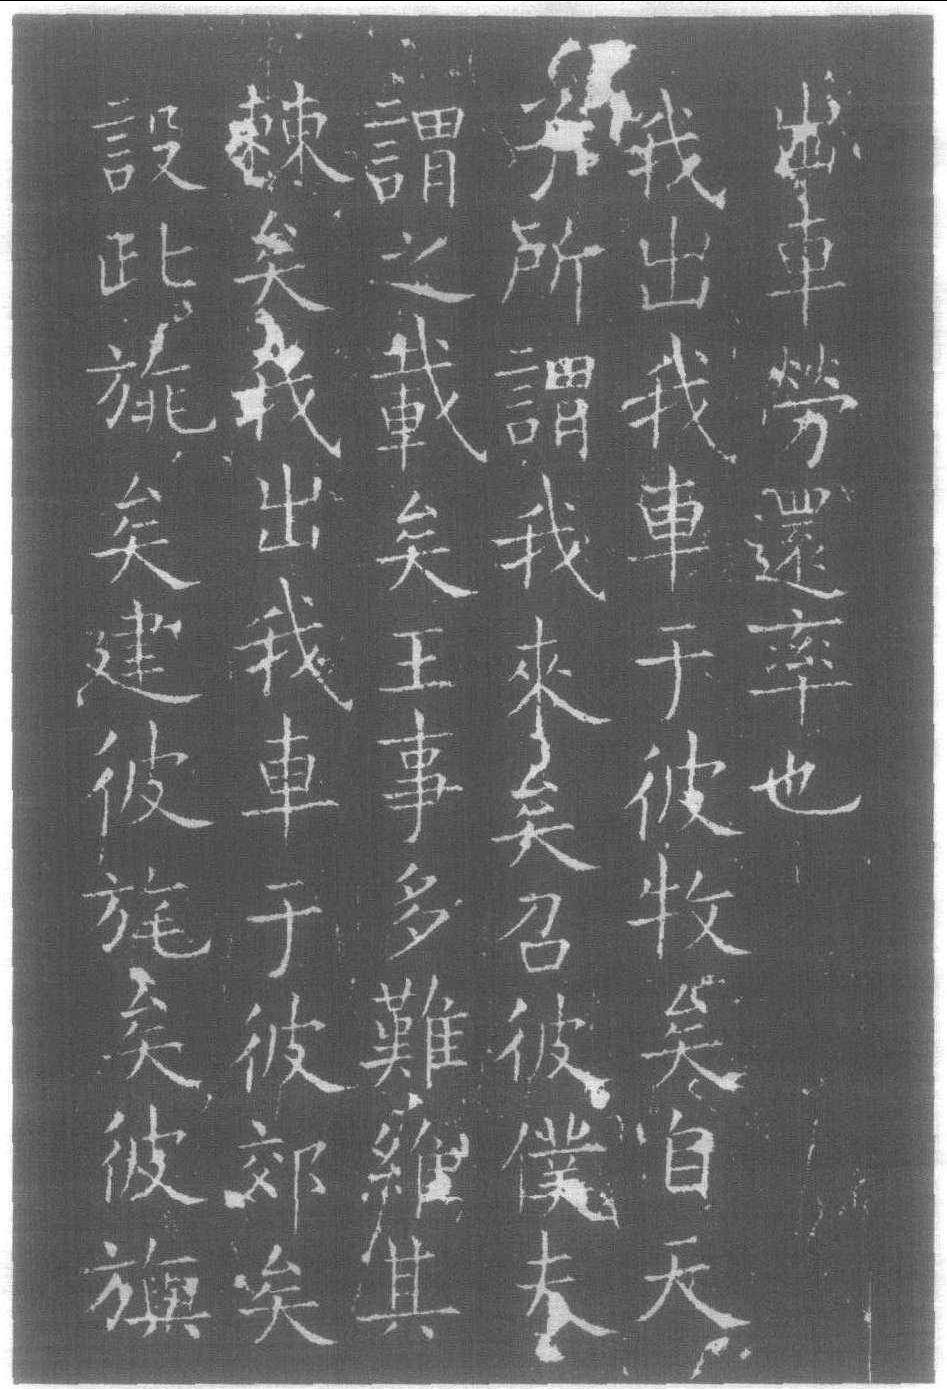 出車勞還率也
我出我車于彼牧矣自天
子所謂我來矣召彼僕夫
謂之載矣王事多難維其
棘矣我出我車于彼郊矣
設此旐矣建彼旄矣彼旟